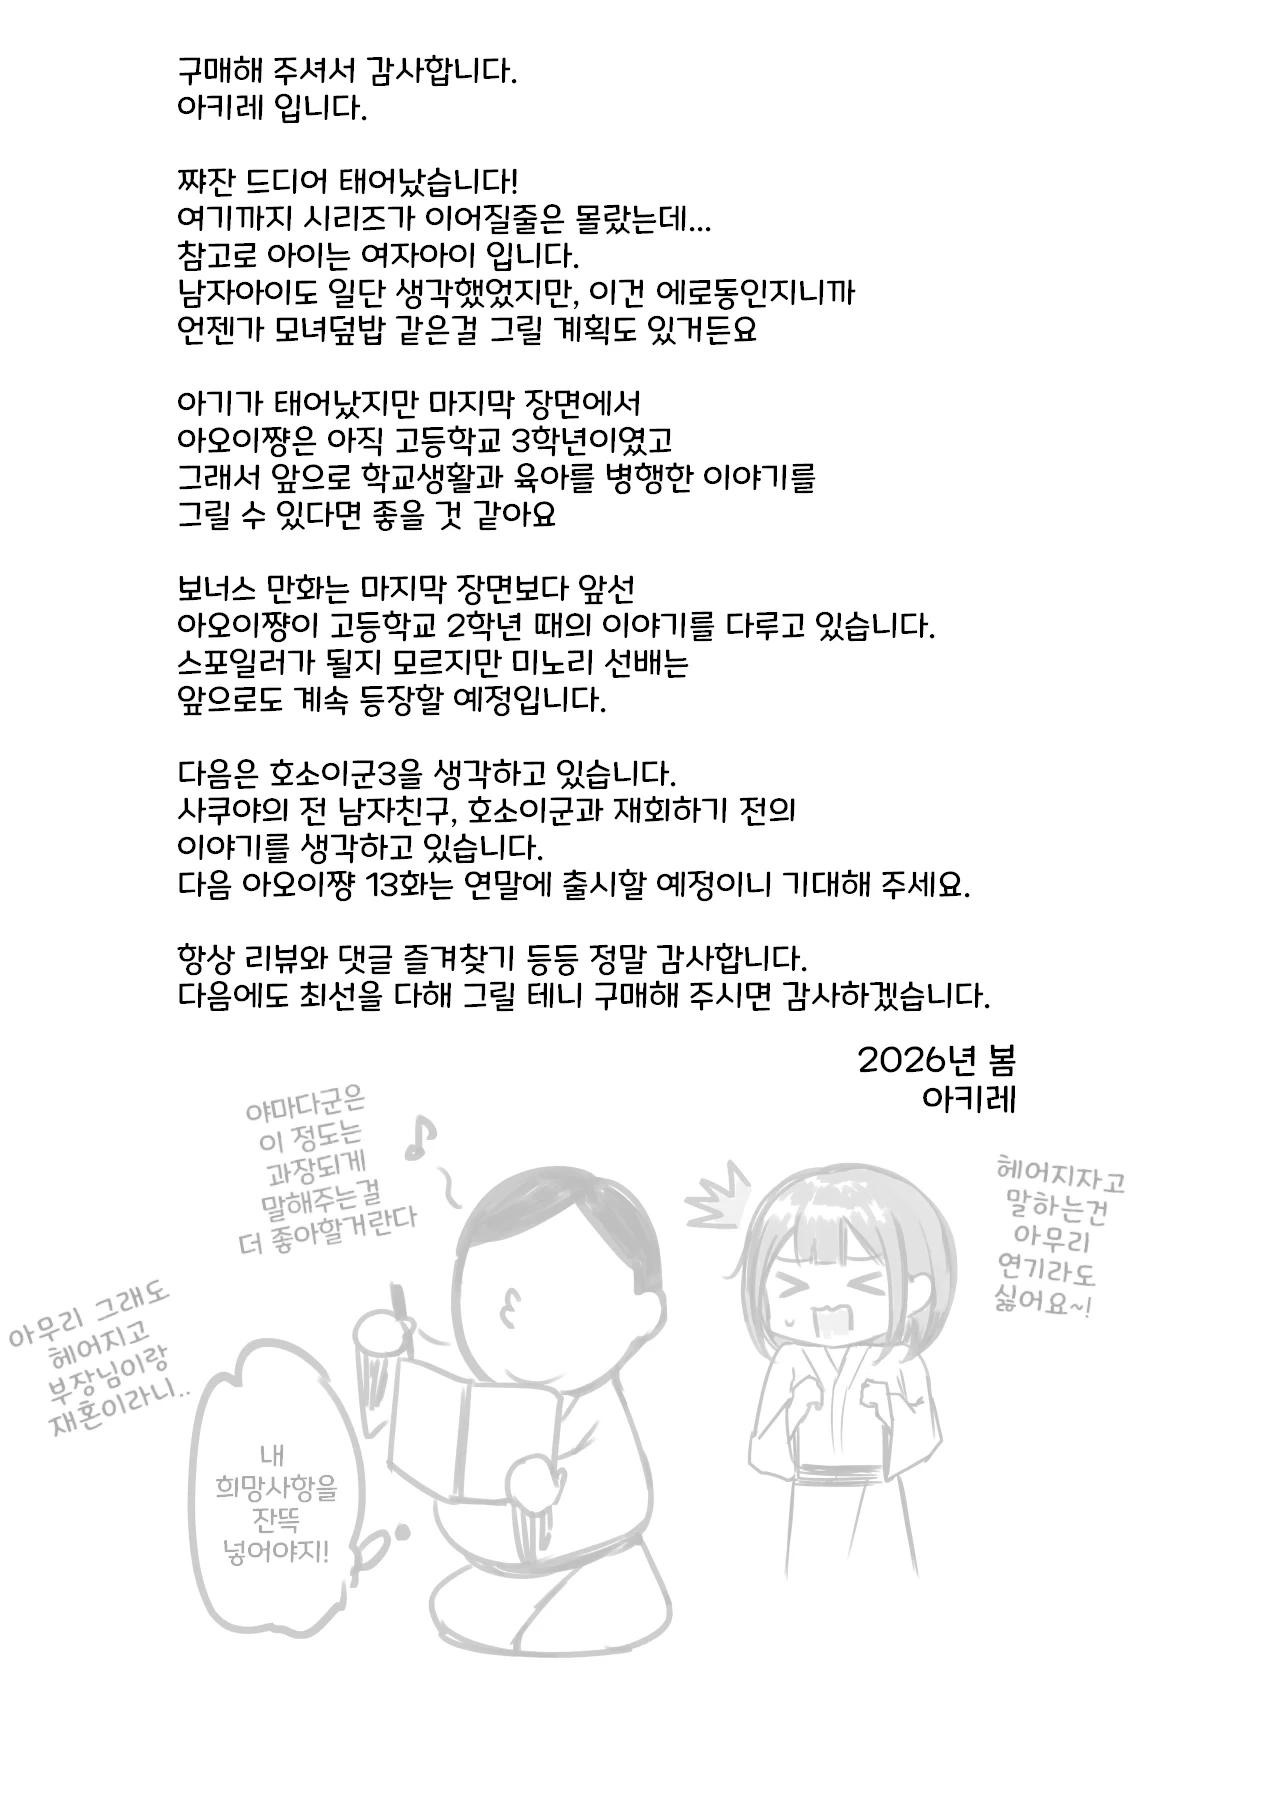 구매해 주셔서 감사합니다.
아키레 입니다.
쨔잔 드디어 태어났습니다!
여기까지 시리즈가 이어질줄은 몰랐는데...
참고로 아이는 여자아이 입니다.
남자아이도 일단 생각했었지만, 이건 에로동인지니까
언젠가 모녀덮밥 같은걸 그릴 계획도 있거든요
아기가 태어났지만 마지막 장면에서
아오이쨩은 아직 고등학교 3학년이였고
그래서 앞으로 학교생활과 육아를 병행한 이야기를
그릴 수 있다면 좋을 것 같아요
보너스 만화는 마지막 장면보다 앞선
아오이쨩이 고등학교 2학년 때의 이야기를 다루고 있습니다.
스포일러가 될지 모르지만 미노리 선배는
앞으로도 계속 등장할 예정입니다.
다음은 호소이군3을 생각하고 있습니다.
사쿠야의 전 남자친구, 호소이군과 재회하기 전의
이야기를 생각하고 있습니다.
다음 아오이쨩 13화는 연말에 출시할 예정이니 기대해 주세요.
항상 리뷰와 댓글 즐겨찾기 등등 정말 감사합니다.
다음에도 최선을 다해 그릴 테니 구매해 주시면 감사하겠습니다.
2026년 봄
아키레
야마다군은
이 정도는
과장되게
말해주는걸
더 좋아할거란다
헤어지자고
말하는건
아무리
연기라도
싫어요~!
아무리 그래도
헤어지고
부장님이랑
재혼이라니..
내
희망사항을
잔뜩
넣어야지!